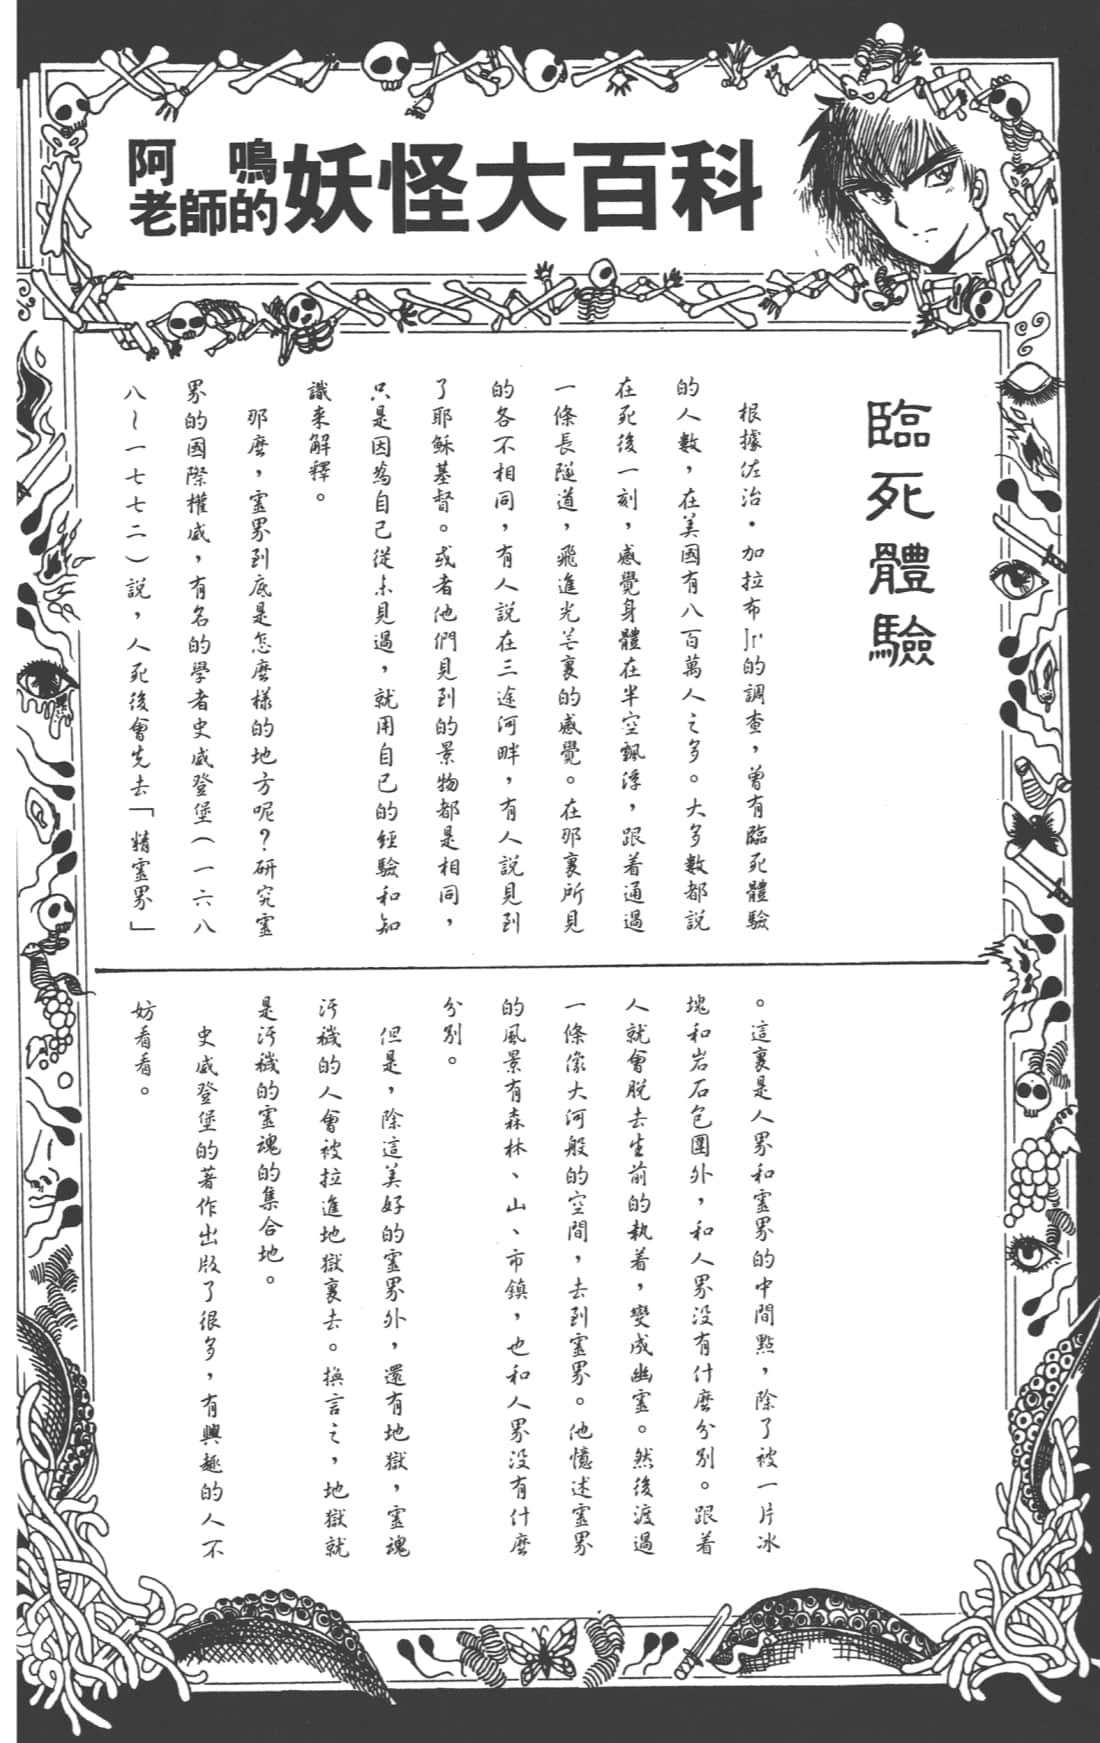 阿鳴
老師的妖怪大百科
臨死體驗
根據佐治・加拉布Jr的調查，曾有臨死體驗
的人數，在美國有八百萬人之多。大多數都說
在死後一刻，感覺身體在半空飄浮，跟着通過
一條長隧道，飛進光芒裏的感覺。在那裏所見
的各不相同，有人說在三途河畔，有人說見到
了耶穌基督。或者他們見到的景物都是相同，
只是因為自己從未見過，就用自己的經驗和知
識來解釋。
那麼，靈界到底是怎麼樣的地方呢？研究靈
界的國際權威，有名的學者史威登堡（一六八
八～一七七二）說，人死後會先去「精靈界」
。這裏是人界和靈界的中間點，除了被一片冰
塊和岩石包圍外，和人界沒有什麼分別。跟着
人就會脫去生前的執着，變成幽靈。然後渡過
一條像大河般的空間，去到靈界。他憶述靈界
的風景有森林、山、市鎮，也和人界沒有什麼
分別。
但是，除這美好的靈界外，還有地獄，靈魂
污穢的人會被拉進地獄裏去。換言之，地獄就
是污穢的靈魂的集合地。
史威登堡的著作出版了很多，有興趣的人不
妨看看。